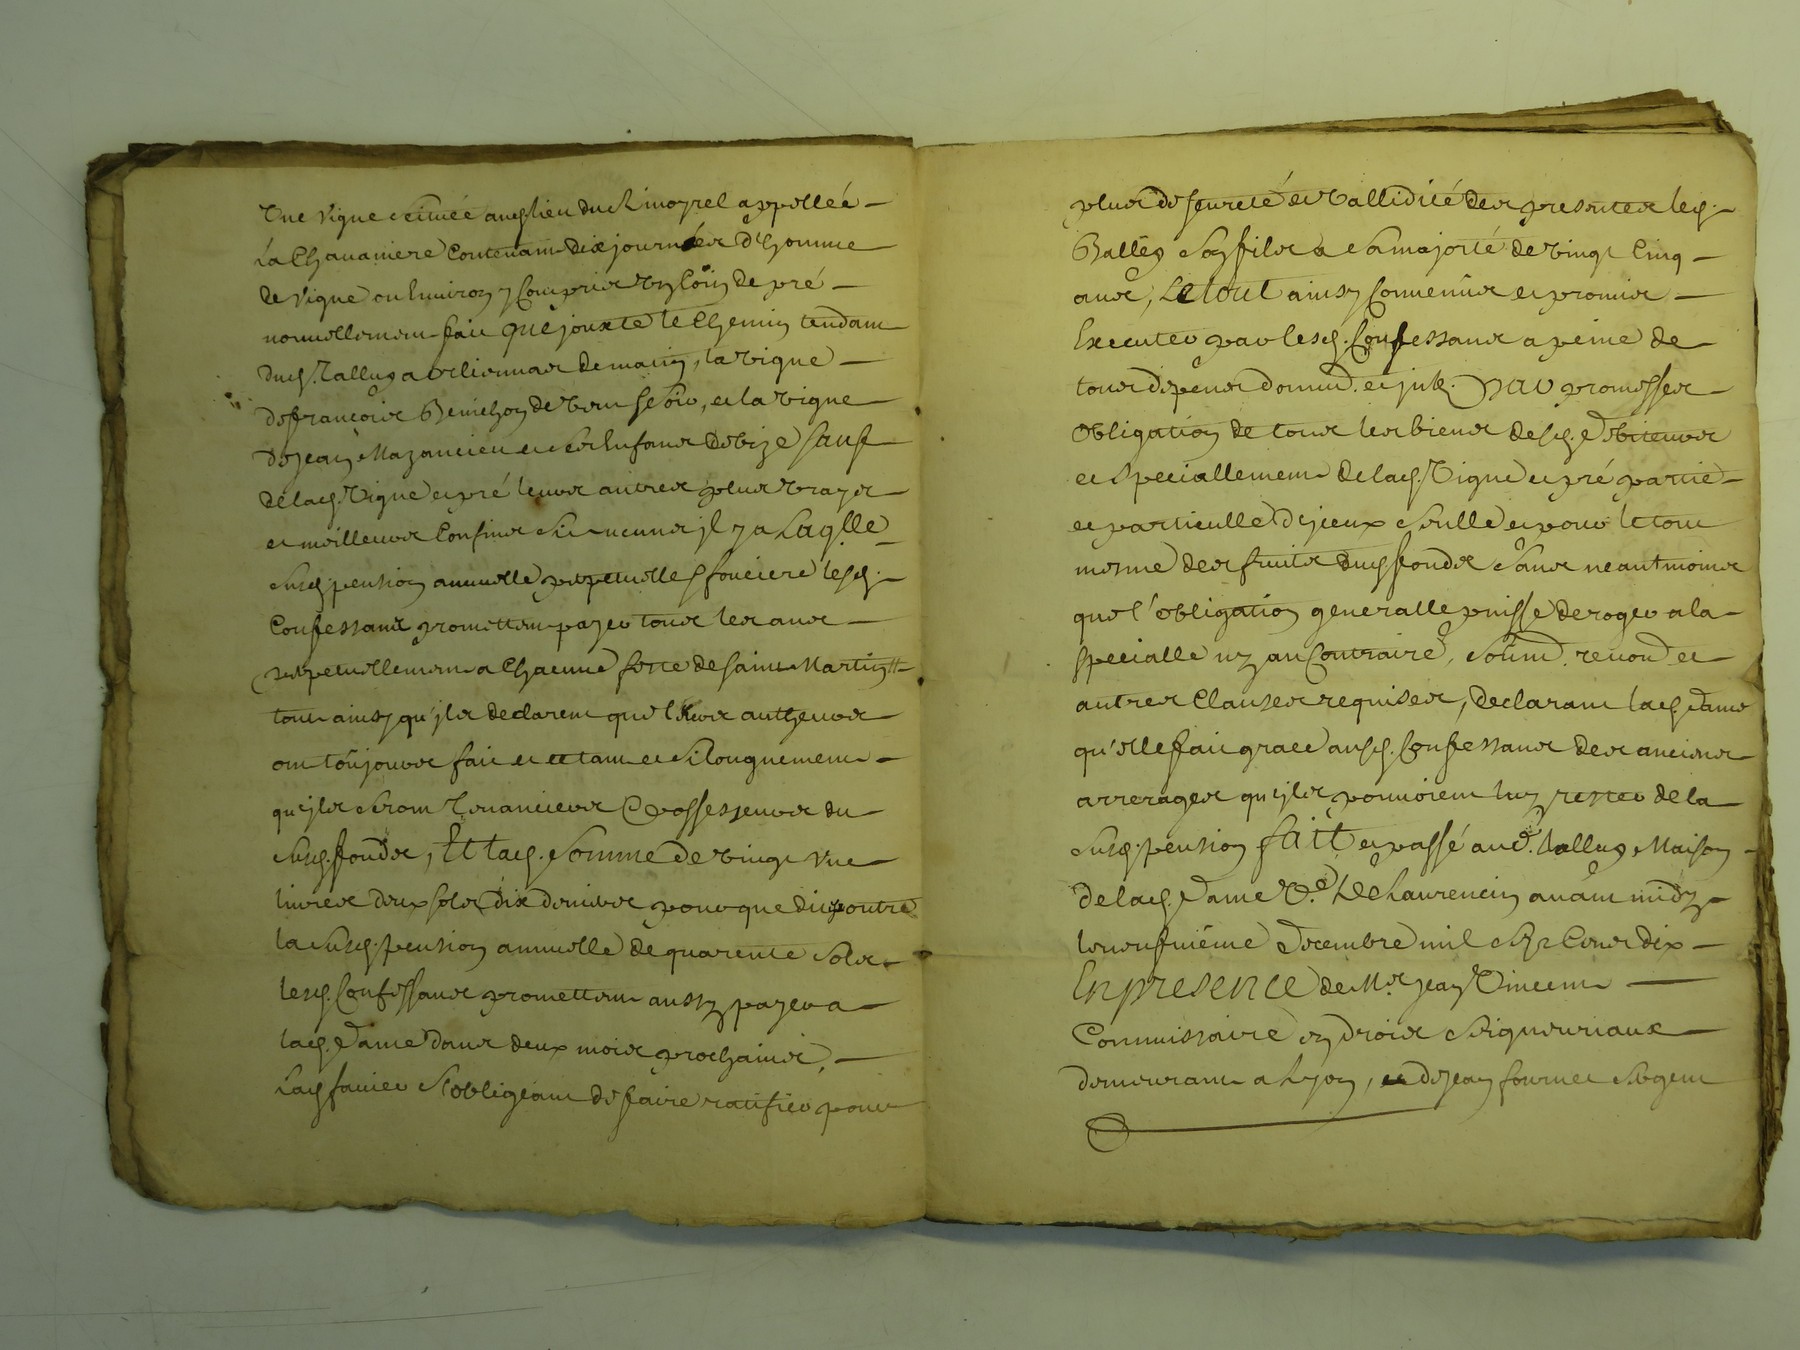 Une vigne scituée aud lieu du Rinoyrel appellée
La Chavaniere Contenant dix journées d'homme
de vigne ou Environ y Compris un Coin de pré
nouvellement fait que jouxte le Chemin tendant
dud. Talluy a orliennas de matin, la vigne
de françois Benichon de vent & soir, et la vigne
de jean Mazancieu et ses Enfans de bize sauf
de lad. vigne et pré leurs autres plus vrayes
et meilleurs Confins si aucuns jl y a Laqlle
susd. pension annuelle perpetuelle & fonciere lesd.
Confessans promettent payer tous les ans
perpetuellement a Chacune feste de saint Martin
tout ainsy qu'jls declarent que leurs autheurs
ont toujours fait et et tant et si longuement
qu'jls seront Tenanciers & possesseurs du
susd. fonds, Et lad. somme de vingt une
livres deux sols dix deniers pour que dit outre
la susd. pension annuelle de quarente sols
lesd. Confessans promettent aussy payer a
lad. Dame dans deux mois prochains,
Lad favier s'obligeant de faire ratifier pour
plus de seureté et vallidité des presentes led.
Balley son fils a sa majorité de vingt Cinq
ans, Le tout ainsy Convenus et promis
Executer par lesd. Confessans a peine de
tous depens domm. et jnts. par promesses
Obligation de tous les biens desd. debiteurs
et speciallement de lad. Vigne et pré partie
et particulle d'jceux seulle et pour le tout
mesme des fruits dud fonds sans neantmoins
que l'obligation generalle puisse deroger a la
specialle ny au Contraire, soumd. renond. et
autres Clauses requises, declarant lad. Dame
qu'elle fait grace ausd. Confessans des anciens
arrerages qu'jls pouvoient luy rester de la
susd. pension fait et passé aud. Talluy Maison
de lad. Dame Ve. De Laurencin avant midy
le neufvième Decembre mil sept Cens dix
En presence de Mr. jean Vincent
Commissaire en droits seigneuriaux
demeurant a Lyon, et de jean fournet sergent